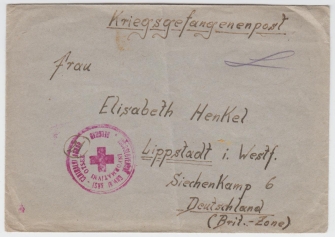 Kriegsgefangenenpost
Frau
Elisabeth Henkel
Lippstadt i. Westf.
Siechenkamp 6
Deutschland
(Brit.-Zone)